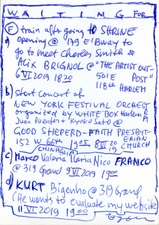 WAITING FOR
F) train after going to SHRINE
a) opening @ 179 E 118way to
go to meet Charles Smith &
ALIX BRIGNOL @ "THE ARTIST OUT-
6 VI 2019 18 30 501 E POST"
118th HARLEM
b) short concert of
NEW YORK FESTIVAL ORCHEST
organized by WHITE BOX Harlem
Juan Puntes + Kyoko Sato @
GOOD SHEPERD-FAITH PRESBY-
152 W 66th 19 05 ERIAN CHURCH
c) Marco Valoria Ilaria Nico FRANCO
@ 319 Grand 9 VI 2019 19 00
d) KURT Bigenho @ 319 Grand
(he wants to evaluate my website
11 VI 2019 19 00